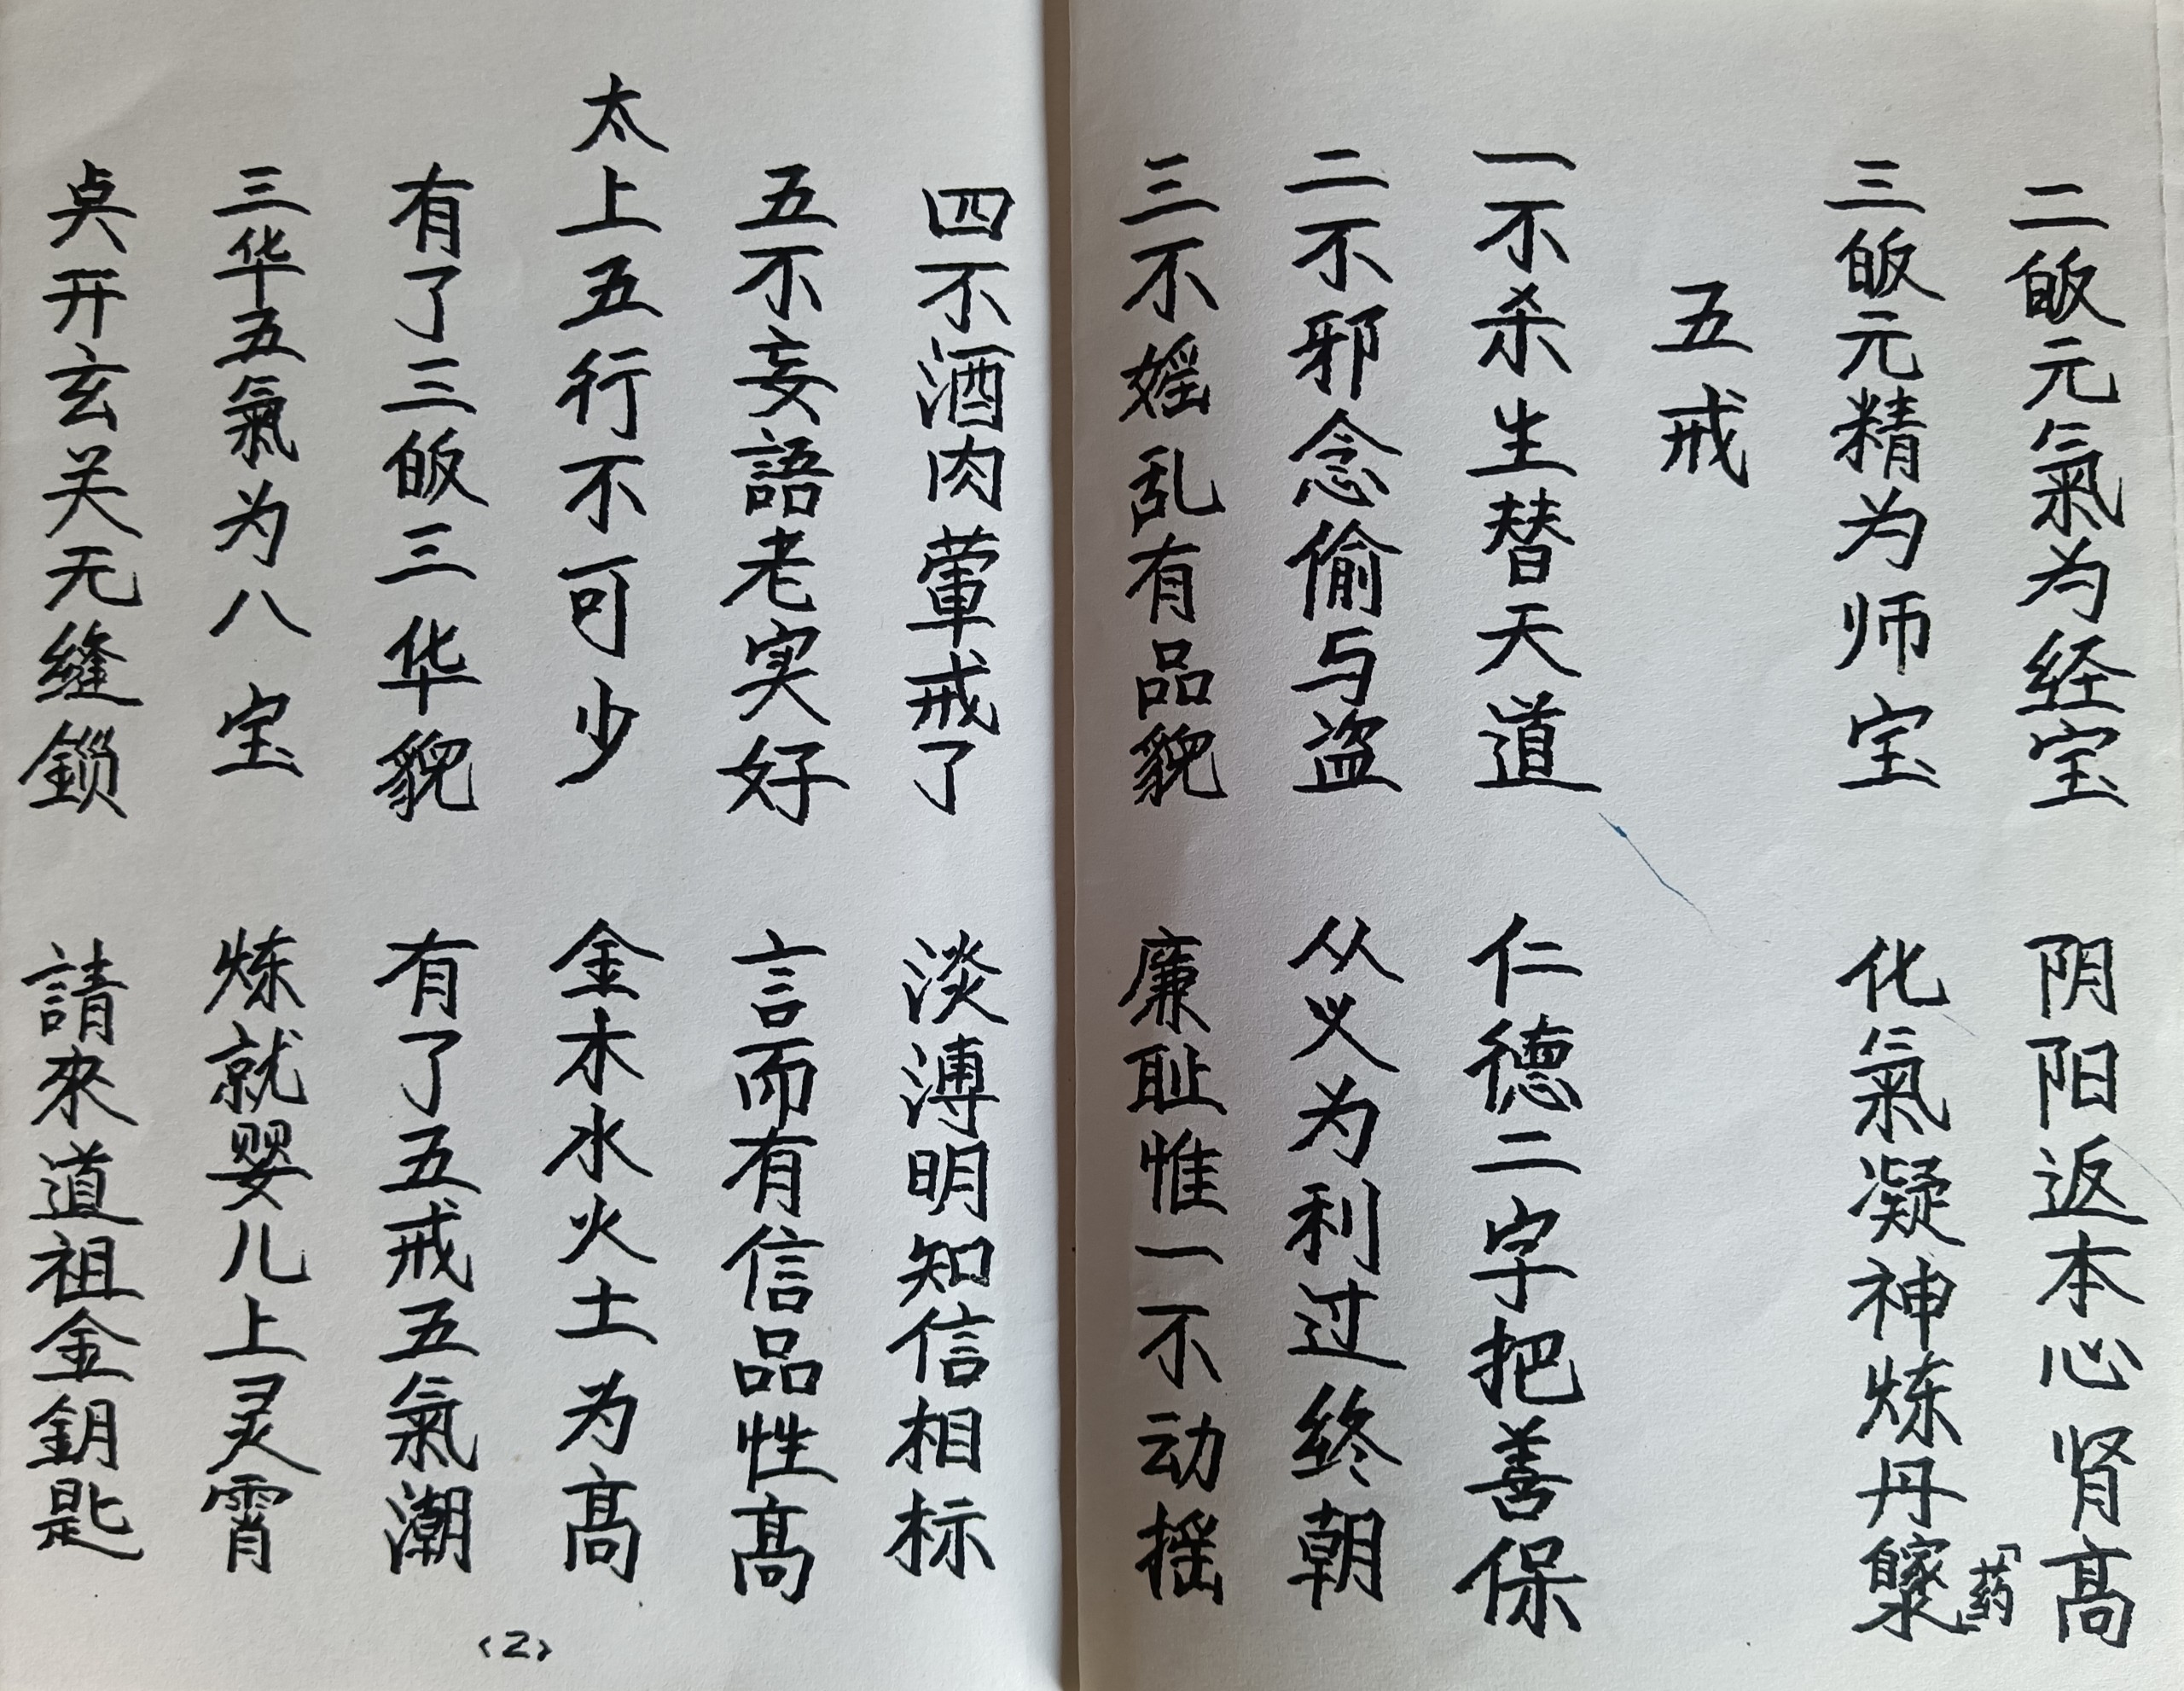 二皈元氣为经宝 阴阳返本心肾高
三皈元精为师宝 化氣凝神炼丹「药」
五戒
一不杀生替天道 仁德二字把善保
二不邪念偷与盗 从义为利过终朝
三不婬乱有品貌 廉耻惟一不动摇
四不酒肉葷戒了 淡溥明知信相标
五不妄語老实好 言而有信品性高
太上五行不可少 金木水火土为高
有了三皈三华貌 有了五戒五氣潮
三华五氣为八宝 炼就婴儿上灵霄
奌开玄关无缝鎖 請來道祖金鑰匙
〈2〉